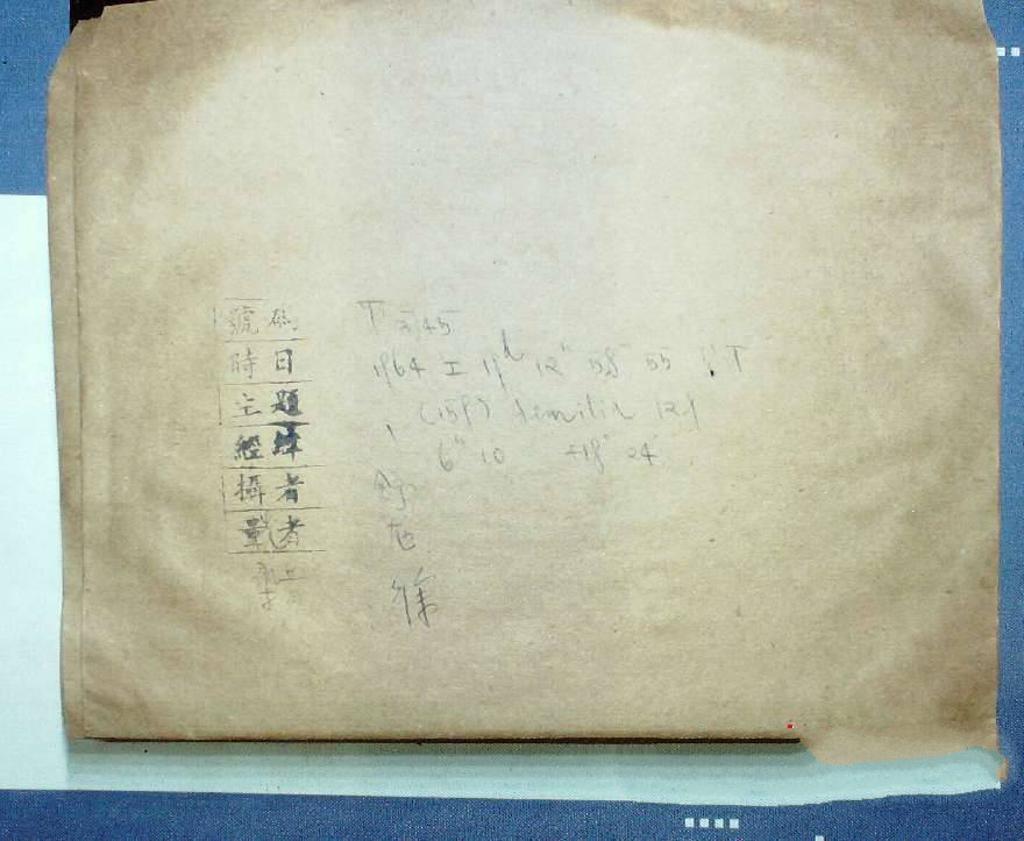 號碼 T 345
時日 1964 I 11d 12h 58 55 UT
主題 (159) Aemilia 12.9
經緯 6h 10 +18° 24'
攝者 舒
量者
徐